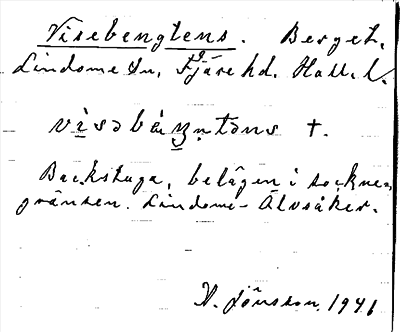 Visebengtens. Berget.
Lindome sn, Fjäre hd. Hall. l.
vìsəbàŋ̣təns †.
Backstuga, belägen i socken-
gränsen. Lindome - Älvsåker.
V. Jönsson. 1941